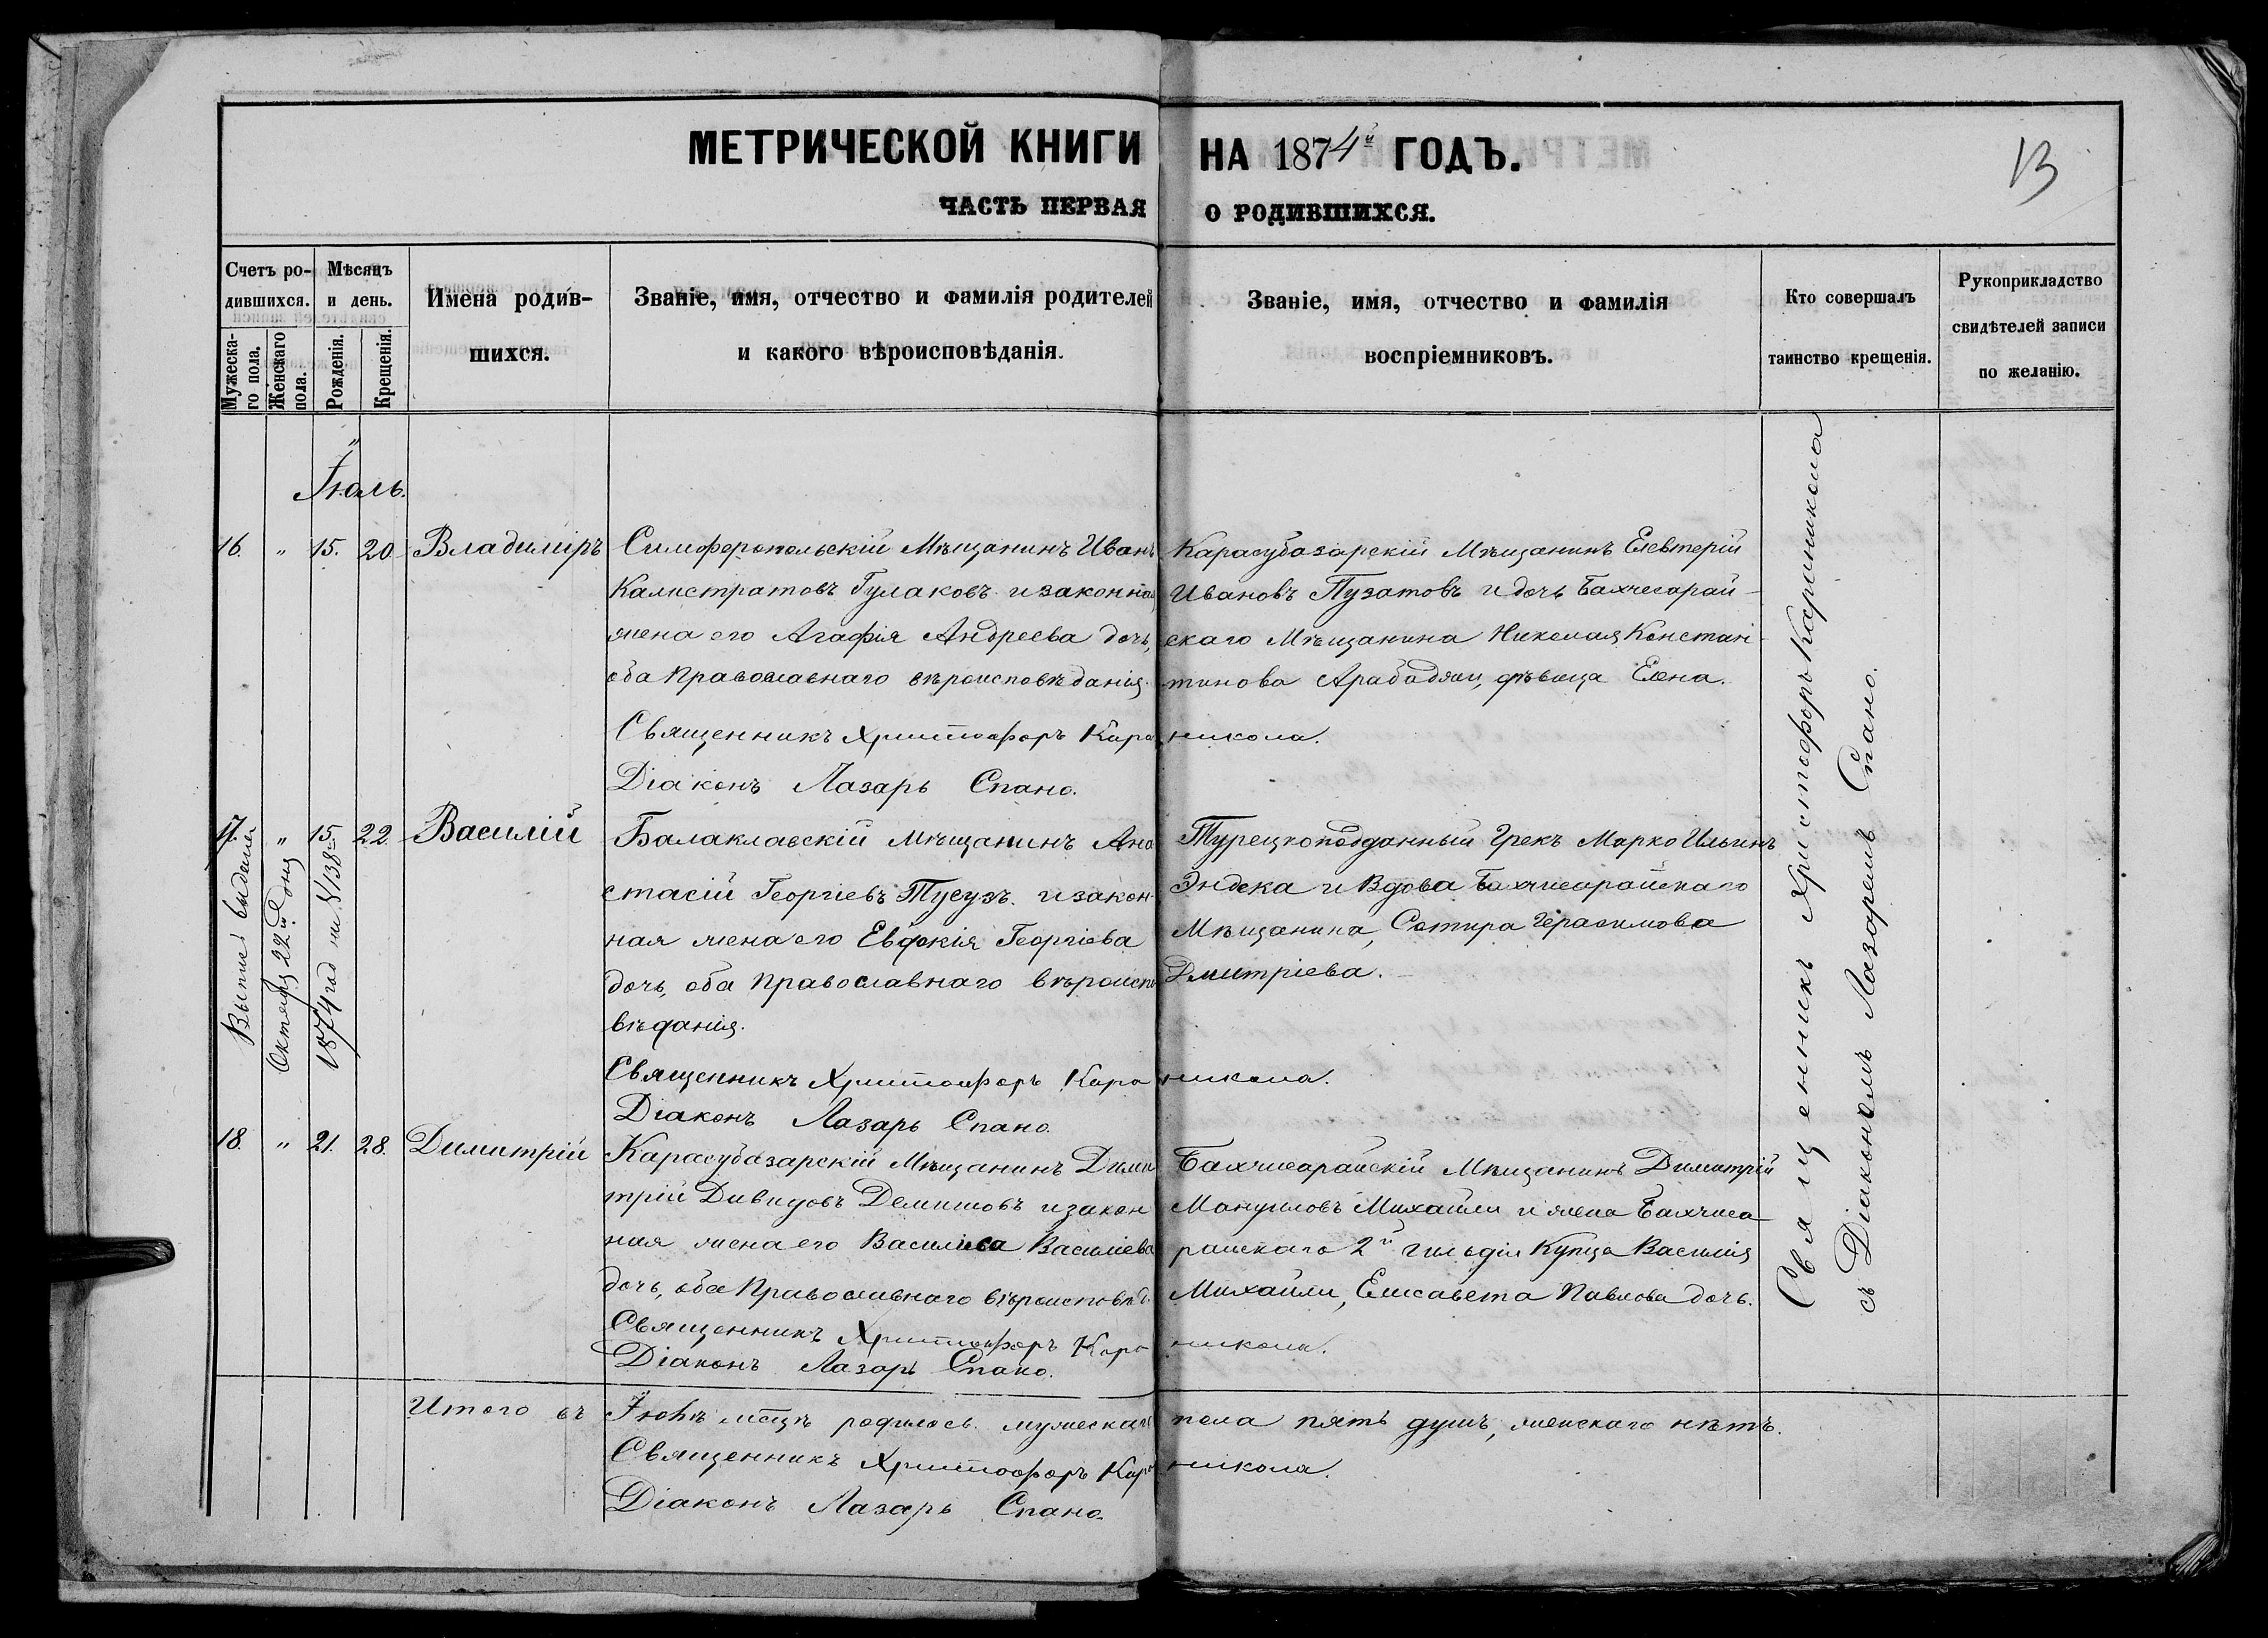 МЕТРИЧЕСКОЙ КНИГИ НА 1874й ГОДЪ.
13
ЧАСТЬ ПЕРВАЯ О РОДИВШИХСЯ.
Счетъ ро-
дившихся.
Мужеска-
го пола.
Женскаго
пола.
Мѣсяцъ
и день.
Рожденія.
Крещенія.
Имена родив-
шихся.
Званіе, имя, отчество и фамилія родителей
и какого вѣроисповѣданія.
Званіе, имя, отчество и фамилія
воспріемниковъ.
Кто совершалъ
таинство крещенія.
Рукоприкладство
свидѣтелей записи
по желанію.
Іюль.
16. " 15. 20. Владиміръ
Симферопольскій Мѣщанинъ Иванъ
Калистратовъ Гулаковъ и законная
жена его Агафія Андреева дочь,
оба Православнаго вѣроисповѣданія.
Карасубазарскій Мѣщанинъ Елевтерій
Ивановъ Пузатовъ и дочь Бахчесарай-
скаго Мѣщанина Николая Констан-
тинова Арабаджи, дѣвица Елена.
Священникъ Христофоръ Караникола.
Діаконъ Лазарь Спано.
17. " 15. 22. Василій
Выпись выдана
Октября 22го дня
1874 год на №138й
Балаклавскій Мѣщанинъ Ана
стасій Георгіевъ Тусузъ и закон-
ная жена его Евдокія Георгіева
дочь, оба Православнаго вѣроиспо
вѣданія.
Турецкоподданный Грекъ Марко Ильинъ
Эндека и Вдова Бахчисарайскаго
Мѣщанина, Сотира Герасимова
Дмитріева.
Священникъ Христофоръ Караникола.
Діаконъ Лазарь Спано.
18. " 21. 28. Димитрій
Карасубазарскій Мѣщанинъ Дими
трій Давидовъ Демишовъ и закон
ная жена его Василиса Василіева
дочь, оба Православнаго вѣроисповѣд.
Бахчисарайскій Мѣщанинъ Димитрій
Мануиловъ Михайли и жена Бахчиса-
райскаго 2й гильдіи Купца Василія
Михайли, Елисавета Павлова дочь.
Священникъ Христофоръ Караникола.
Діаконъ Лазарь Спано.
Священникъ Христофоръ Караникола
съ Діакономъ Лазаремъ Спано.
Итого въ Іюлѣ мѣцѣ родилось мужескаго пола пять душъ, женскаго нѣтъ.
Священникъ Христофоръ Караникола.
Діаконъ Лазарь Спано.